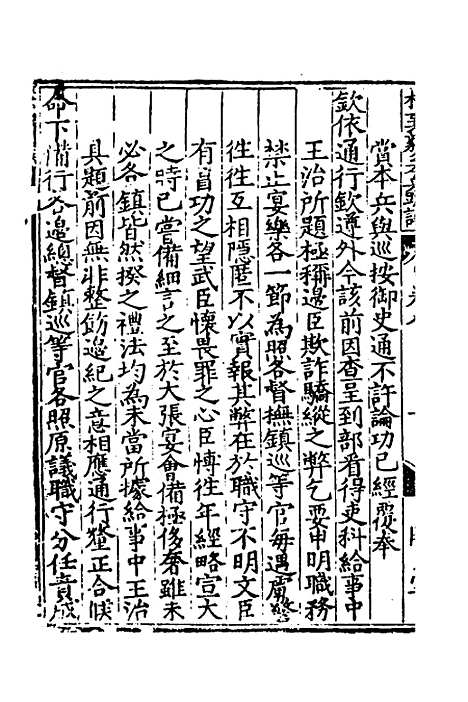 賞本兵與巡按御史通不許論功已經覆奉
欽依通行欽遵外今該前因查呈到部看得吏科給事中
王治所題極稱邊臣欺詐驕縱之弊乞要申明職務
禁止宴樂各一節為照各督撫鎮巡等官每遇虜警
徃徃互相隱匿不以實報其弊在於職守不明文臣
有自功之望武臣懷畏罪之心臣博徃年經略宣大
之時已嘗備細言之至於大張宴會備極侈奢雖未
必各鎮皆然揆之禮法均為未當所據給事中王治
具題前因無非整飭邊紀之意相應通行釐正合候
命下備行各邊總督鎮巡等官各照原議職守分任責成